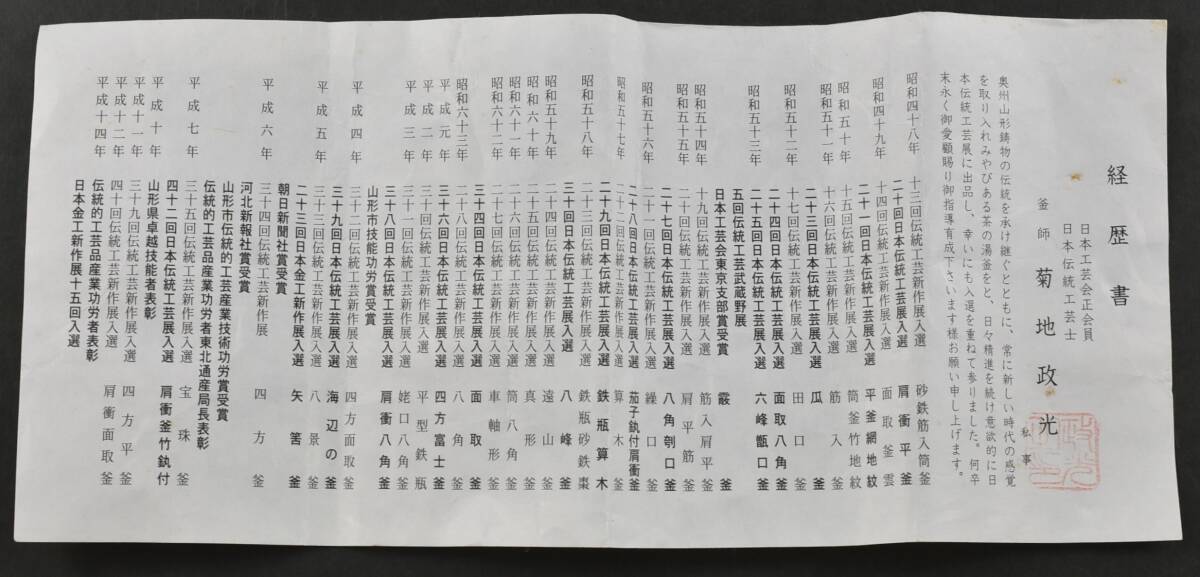 経歴書
日本工芸会正会員
日本伝統工芸士
釜師 菊地政光
私事
奥州山形鋳物の伝統を承け継ぐとともに、常に新しい時代の感覚
を取り入れみやびある茶の湯釜をと、日々精進を続け意欲的に日
本伝統工芸展に出品し、幸いにも入選を重ねて参りました。何卒
末永く御愛顧賜り御指導育成下さいます様お願い申し上げます。
昭和四十八年 十三回伝統工芸新作展入選 砂鉄筋入筒釜
二十回日本伝統工芸展入選 肩衝平釜
昭和四十九年 十四回伝統工芸新作展入選 面取釜雲
二十一回日本伝統工芸展入選 平釜網地紋
昭和五十年 十五回伝統工芸新作展入選 筒釜竹地紋
昭和五十一年 十六回伝統工芸新作展入選 筋入釜
二十三回日本伝統工芸展入選 瓜釜
昭和五十二年 十七回伝統工芸新作展入選 田口釜
二十四回日本伝統工芸展入選 面取八角釜
昭和五十三年 二十五回日本伝統工芸展入選 六峰甑口釜
五回伝統工芸武蔵野展
日本工芸会東京支部賞受賞 霰釜
昭和五十四年 十九回伝統工芸新作展入選 筋入肩平釜
昭和五十五年 二十回伝統工芸新作展入選 肩平筋釜
二十七回日本伝統工芸展入選 八角刳口釜
昭和五十六年 二十一回伝統工芸新作展入選 繰口釜
二十八回日本伝統工芸展入選 茄子釻付肩衝釜
昭和五十七年 二十二回伝統工芸新作展入選 算木釜
二十九回日本伝統工芸展入選 鉄瓶算木
昭和五十八年 二十三回伝統工芸新作展入選 鉄瓶砂鉄棗
三十回日本伝統工芸展入選 八峰釜
昭和五十九年 二十四回伝統工芸新作展入選 遠山釜
昭和六十年 二十五回伝統工芸新作展入選 真形釜
昭和六十一年 二十六回伝統工芸新作展入選 筒八角釜
昭和六十二年 二十七回伝統工芸新作展入選 車軸形釜
三十四回日本伝統工芸展入選 面取釜
昭和六十三年 二十八回伝統工芸新作展入選 八角釜
平成元年 三十六回日本伝統工芸展入選 四方富士釜
平成二年 三十回伝統工芸新作展入選 平型鉄瓶
平成三年 三十一回伝統工芸新作展入選 姥口八角釜
三十八回日本伝統工芸展入選 肩衝八角釜
山形市技能功労賞受賞
平成四年 三十二回伝統工芸新作展入選 四方面取釜
三十九回日本伝統工芸展入選 海辺の釜
平成五年 三十三回伝統工芸新作展入選 八景釜
二十三回日本金工新作展入選 矢筈釜
朝日新聞社賞受賞
平成六年 三十四回伝統工芸新作展 四方釜
河北新報社賞受賞
山形市伝統的工芸産業技術功労賞受賞
伝統的工芸品産業功労者東北通産局長表彰
平成七年 三十五回伝統工芸新作展入選 宝珠釜
四十二回日本伝統工芸展入選 肩衝釜竹釻付
平成十年 山形県卓越技能者表彰
平成十一年 三十九回伝統工芸新作展入選 四方平釜
平成十二年 四十回伝統工芸新作展入選 肩衝面取釜
平成十四年 伝統的工芸品産業功労者表彰
日本金工新作展十五回入選